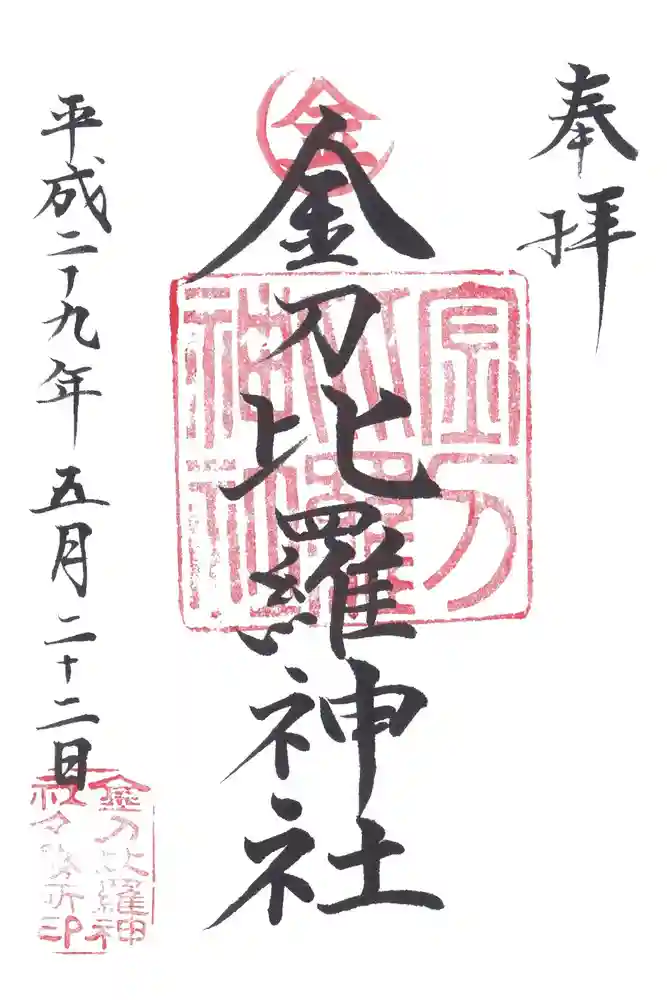 奉拝
金
金刀比羅神社
金刀
比羅
神社
平成二十九年五月二十二日
金刀比羅神
社社務所印